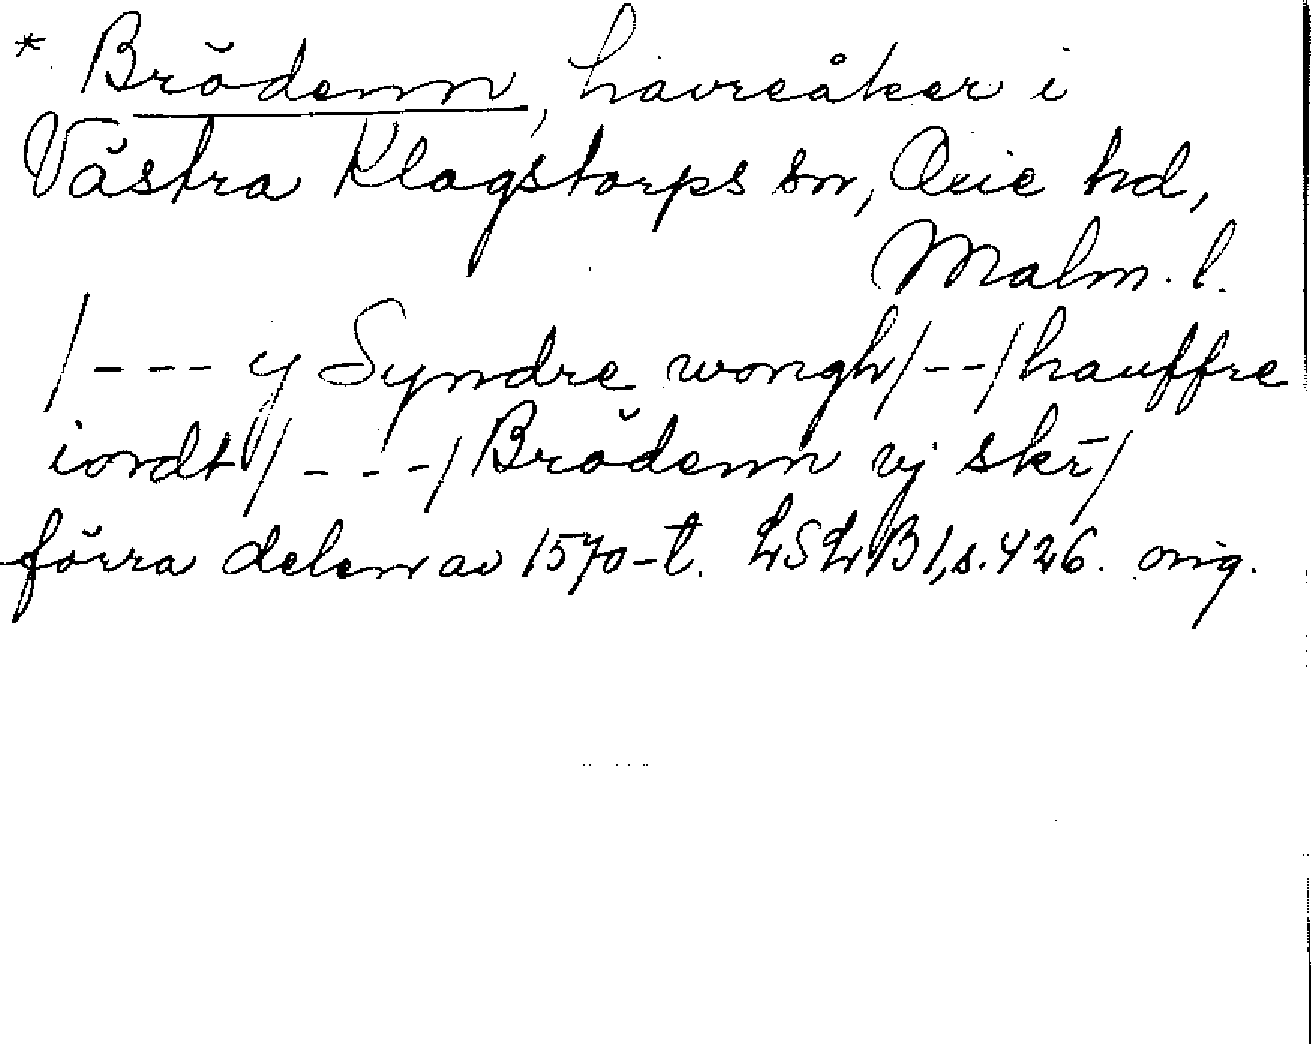 * Brödenn, havreåker i
Västra Klagstorps sn, Oxie hd,
Malm. l.
/--- y Syndre wongh/--/hauffre
iordt/---/Brödenn vj skr̄/
förra delen av 1570-t. LSLB1, s. 426. orig.